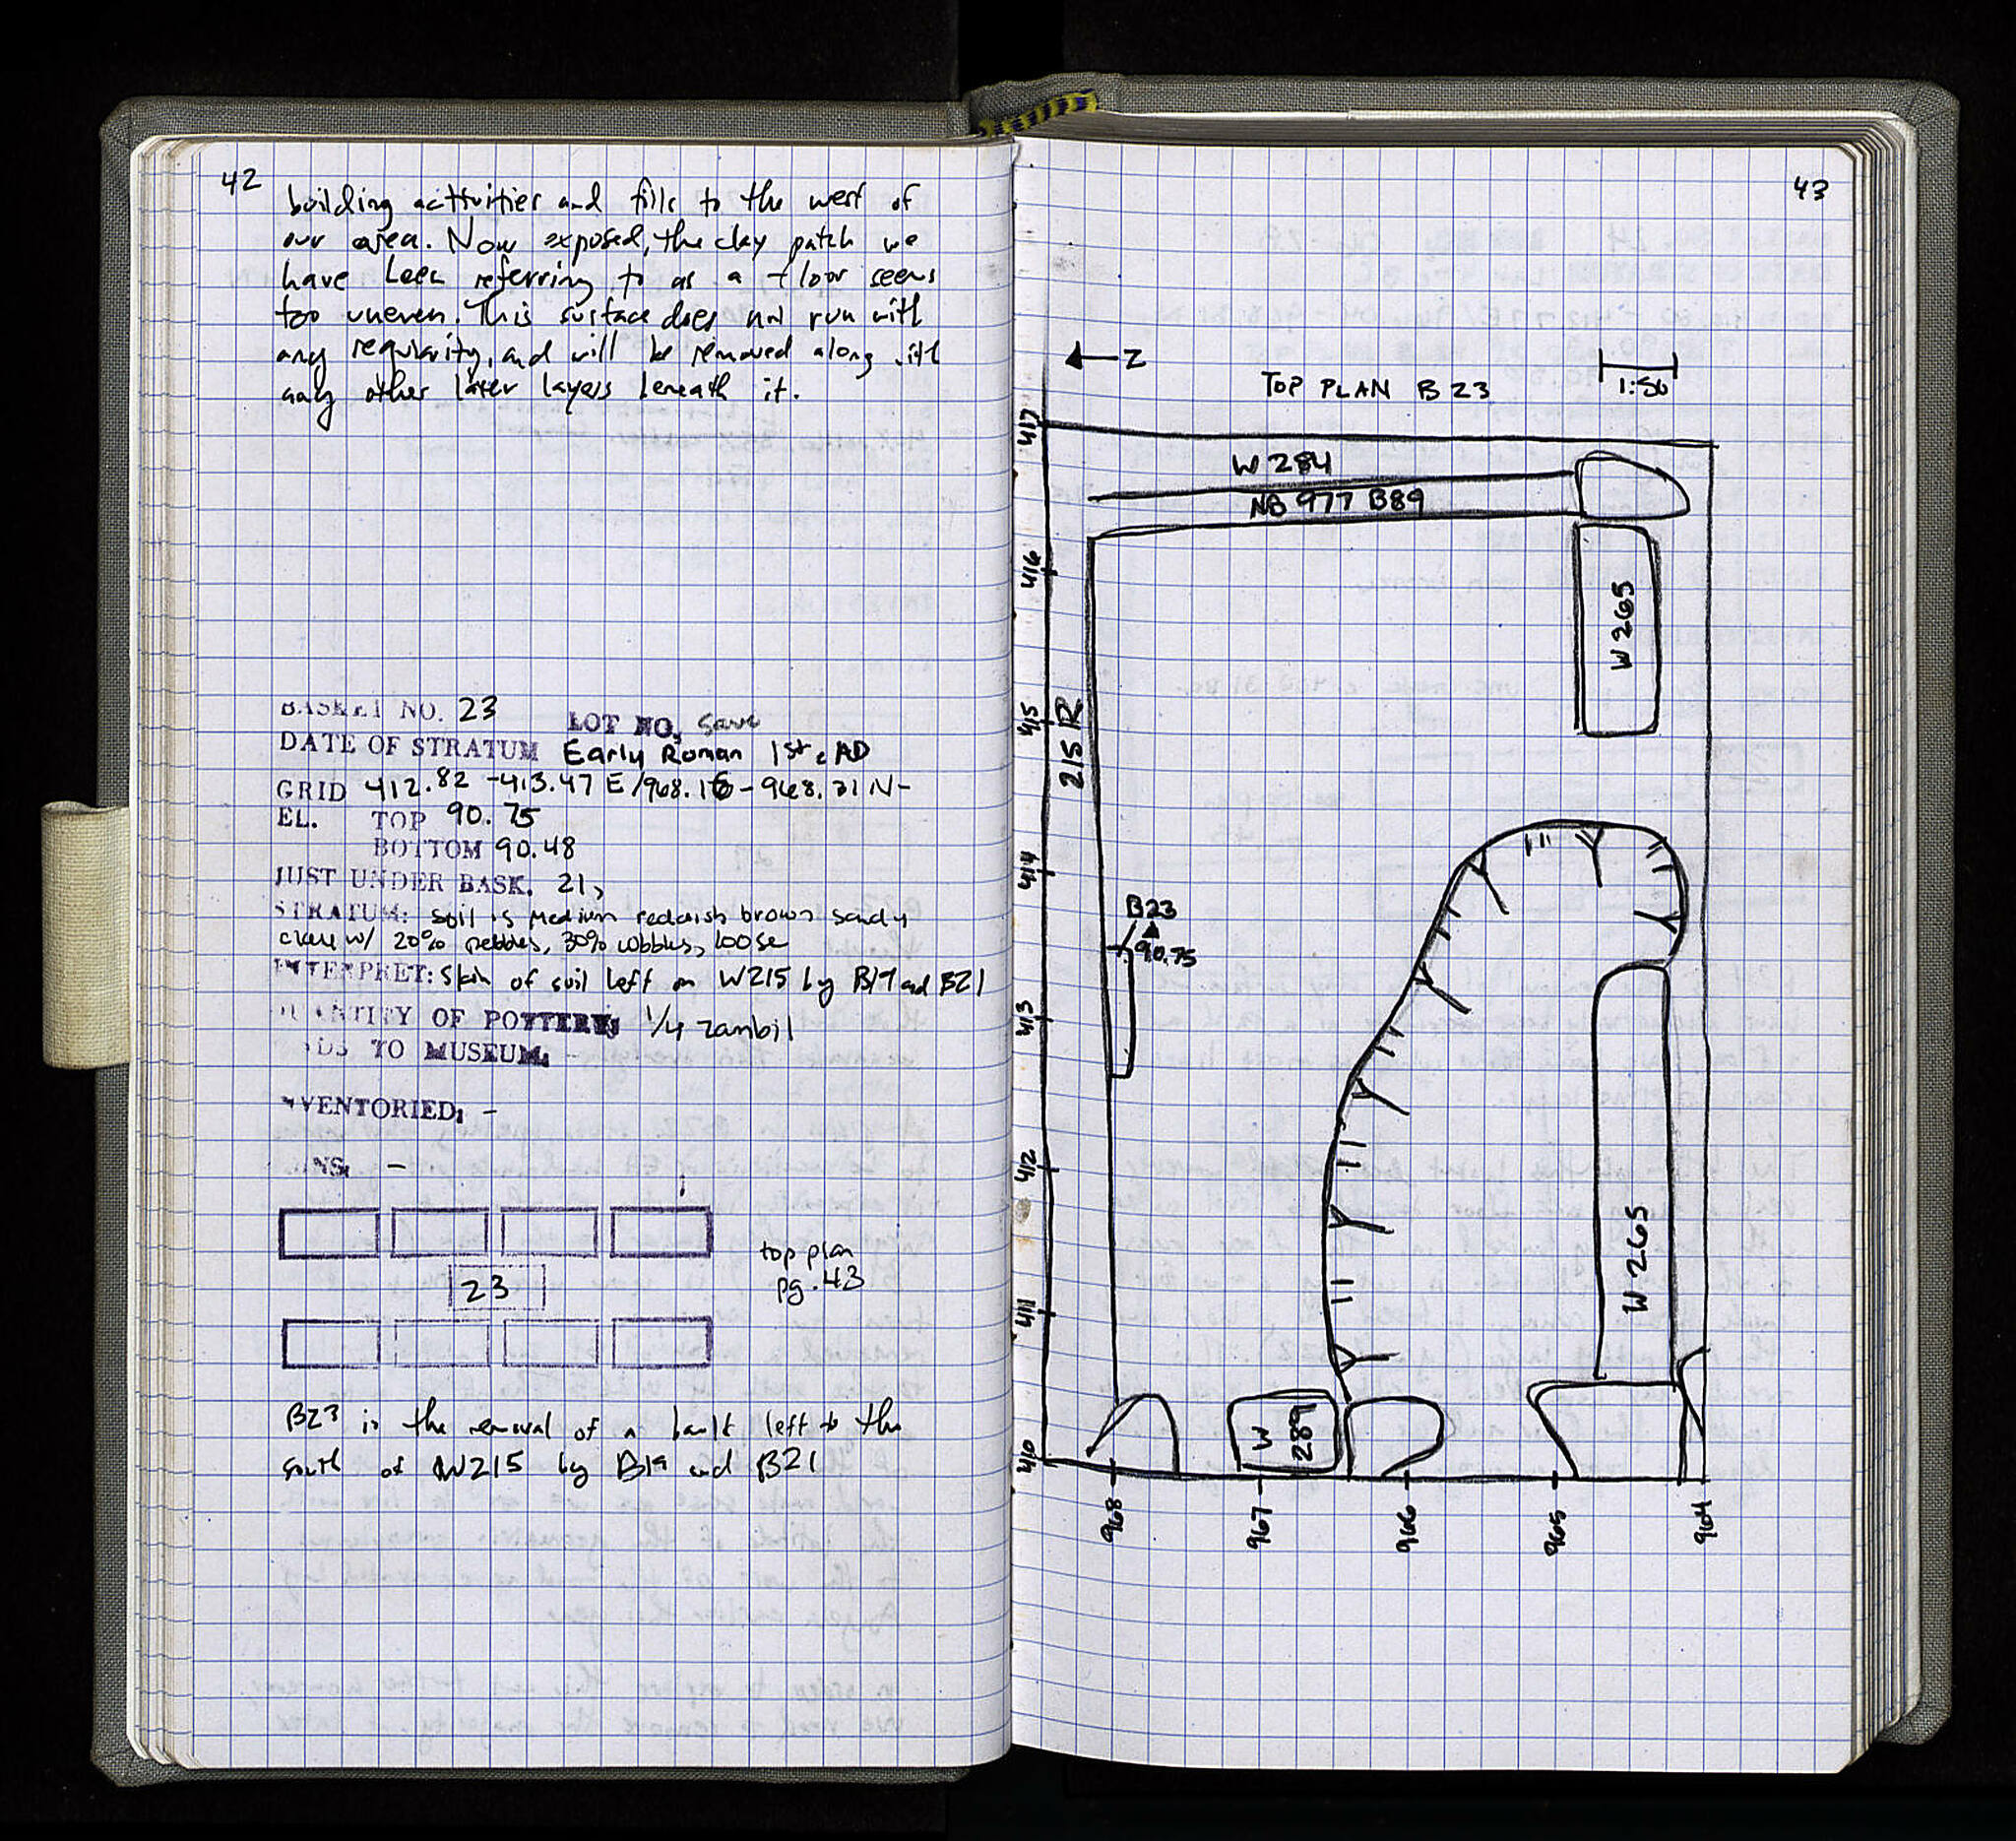 42
building activities and fills to the west of
our area. Now exposed, the clay patch we
have been referring to as a floor seems
too uneven. This surface does not run with
any regularity, and will be removed along with
any other later layers beneath it.
BASKET NO. 23
LOT NO. save
DATE OF STRATUM Early Roman 1st c AD
GRID 412.82 - 413.47 E / 968.16 - 968.31 N -
EL. TOP 90.75
BOTTOM 90.48
JUST UNDER BASK. 21,
STRATUM: Soil is medium reddish brown sandy
clay w/ 20% pebbles, 30% cobbles, loose
INTERPRET: Skin of soil left on W215 by B19 and B21
QUANTITY OF POTTERY: 1/4 zambil
TO MUSEUM. -
INVENTORIED: -
-
23
top plan
pg. 43
B23 is the removal of a baulk left to the
south of W215 by B19 and B21
43
N
TOP PLAN B 23
1:50
417
W 284
NB 977 B89
416
W 265
415
215 R
414
B23
90.75
413
412
W 265
411
W 289
410
968
967
966
965
964